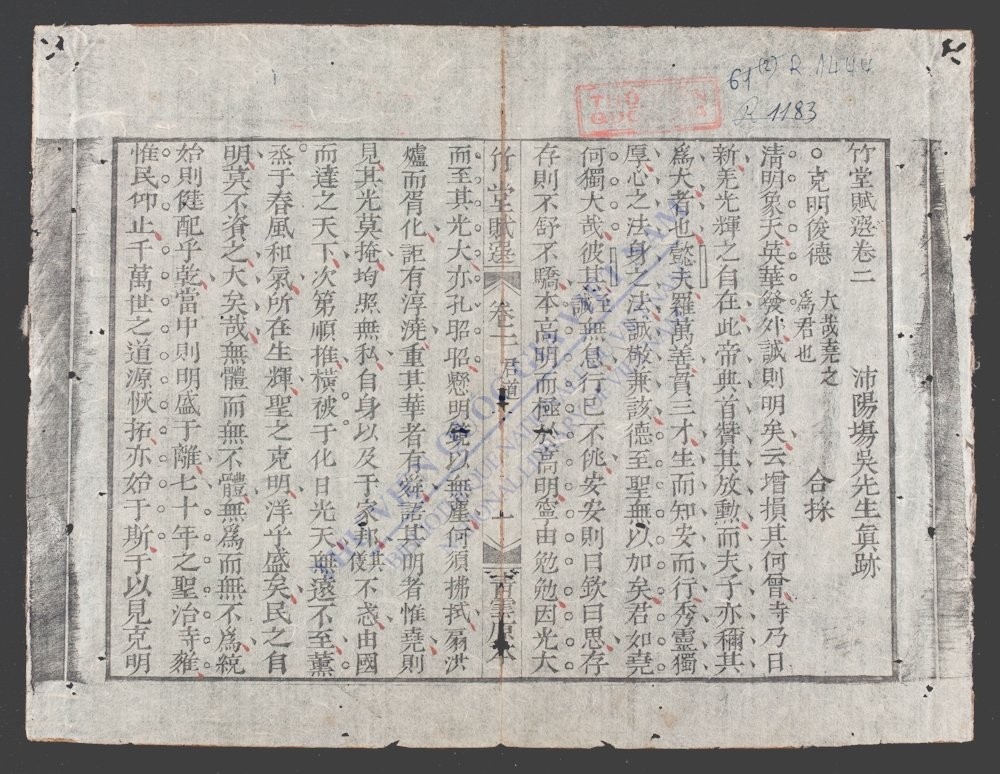 61 (2) R. 1444
R 1183
竹堂賦選卷二　沛陽場吳先生眞跡
克明俊德　大哉堯之爲君也　合採
清明象天英華發外誠則明矣云增損其何曾寺乃日
新羌光輝之自在此帝典首贊其放勳而夫子亦稱其
爲大者也懿夫羅萬善資三才生而知安而行秀靈獨
厚心之法身之法誠敬兼該德至聖無以加矣君如堯
何獨大哉彼其誠經無息行已不佻安安則曰欽曰思存
存則不舒不驕本高明而極於高明寧由勉勉因光大
竹堂賦選　卷二　君道　一　青雲原本
而至其光大亦孔昭昭懸明鏡以無塵何須拂拭扇洪
爐而胥化詎有淳澆重其華者有舜諾其明者惟堯則
見其光莫掩均照無私自身以及于家邦其儀不忒由國
而達之天下次第順推橫被于化日光天無遠不至薰
烝于春風和氣所在生輝聖之克明洋乎盛矣民之自
明莫不資之大矣哉無體而無不體無爲而無不爲統
始則健配乎乾當中則明盛于離七十年之聖治寺雍
惟民仰止千萬世之道源恢拓亦始于斯于以見克明